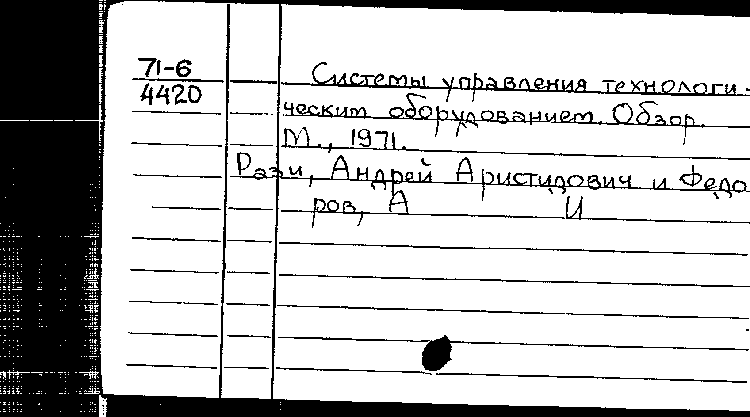 71-6
4420
Системы управления технологи-
ческим оборудованием. Обзор.
М., 1971.
Рази, Андрей Аристидович и Федо
ров, А И